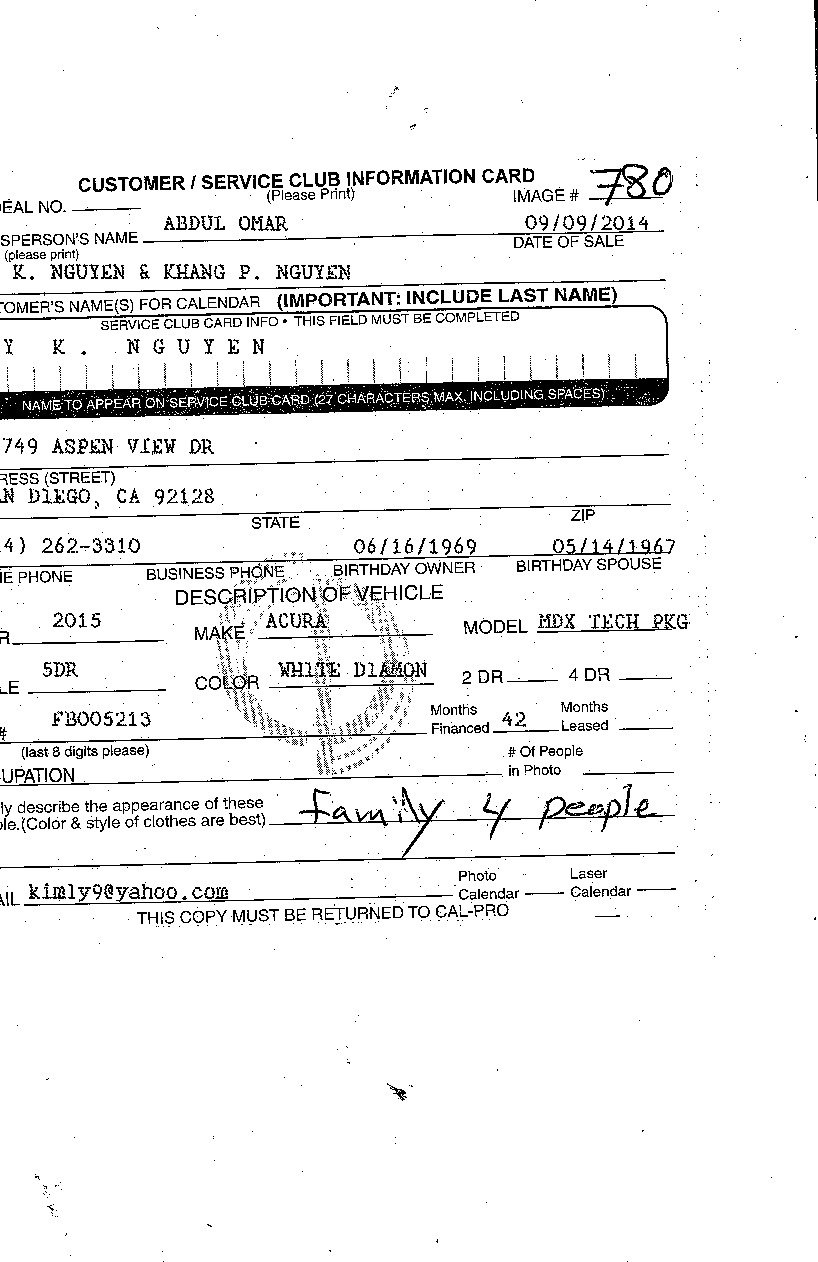 CUSTOMER / SERVICE CLUB INFORMATION CARD
(Please Print)
IMAGE # 780
EAL NO.
ABDUL OMAR 09/09/2014
SPERSON'S NAME DATE OF SALE
(please print)
K. NGUYEN & KHANG P. NGUYEN
OMER'S NAME(S) FOR CALENDAR (IMPORTANT: INCLUDE LAST NAME)
SERVICE CLUB CARD INFO • THIS FIELD MUST BE COMPLETED
Y K. NGUYEN
NAME TO APPEAR ON SERVICE CLUB CARD (27 CHARACTERS MAX, INCLUDING SPACES)
749 ASPEN VIEW DR
RESS (STREET)
AN DIEGO, CA 92128
STATE ZIP
4) 262-3310 06/16/1969 05/14/1967
E PHONE BUSINESS PHONE BIRTHDAY OWNER BIRTHDAY SPOUSE
DESCRIPTION OF VEHICLE
R 2015 MAKE ACURA MODEL MDX TECH PKG
LE 5DR COLOR WHITE DIAMON 2 DR 4 DR
# FB005213 Months Financed 42 Months Leased
(last 8 digits please) # Of People
UPATION in Photo
ly describe the appearance of these
le.(Color & style of clothes are best) family 4 people
AIL kimly9@yahoo.com Photo Calendar Laser Calendar
THIS COPY MUST BE RETURNED TO CAL-PRO